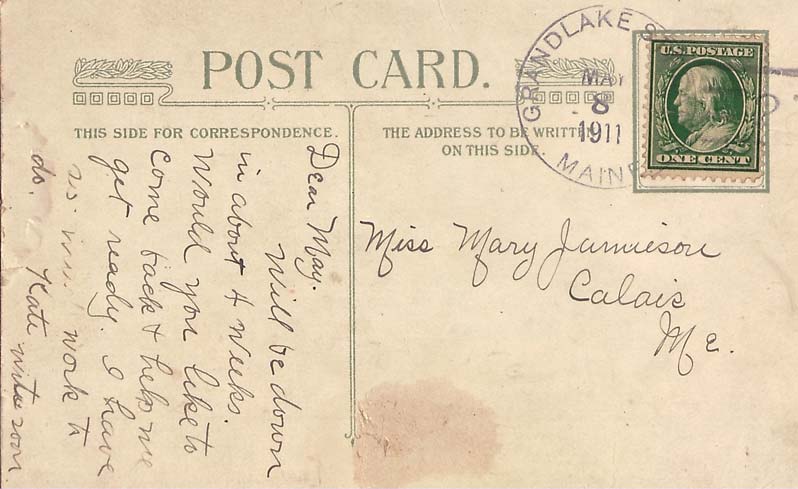 POST CARD.
THIS SIDE FOR CORRESPONDENCE.
THE ADDRESS TO BE WRITTEN
ON THIS SIDE.
GRANDLAKE S
MAY
8
1911
MAINE
U.S. POSTAGE
ONE CENT
Dear May.
Will be down
in about 4 weeks.
Would you like to
come back & help me
get ready. I have
work to
do. Kate write soon
Miss Mary Jamieson
Calais
Me.